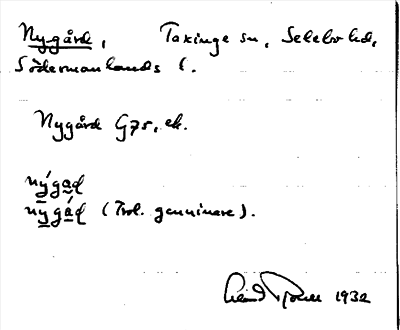 Nygård, Taxinge sn, Selebo hd,
Södermanlands l.
Nygård G75, ek.
nýgad
nygád (Trol. genuinare).
1932